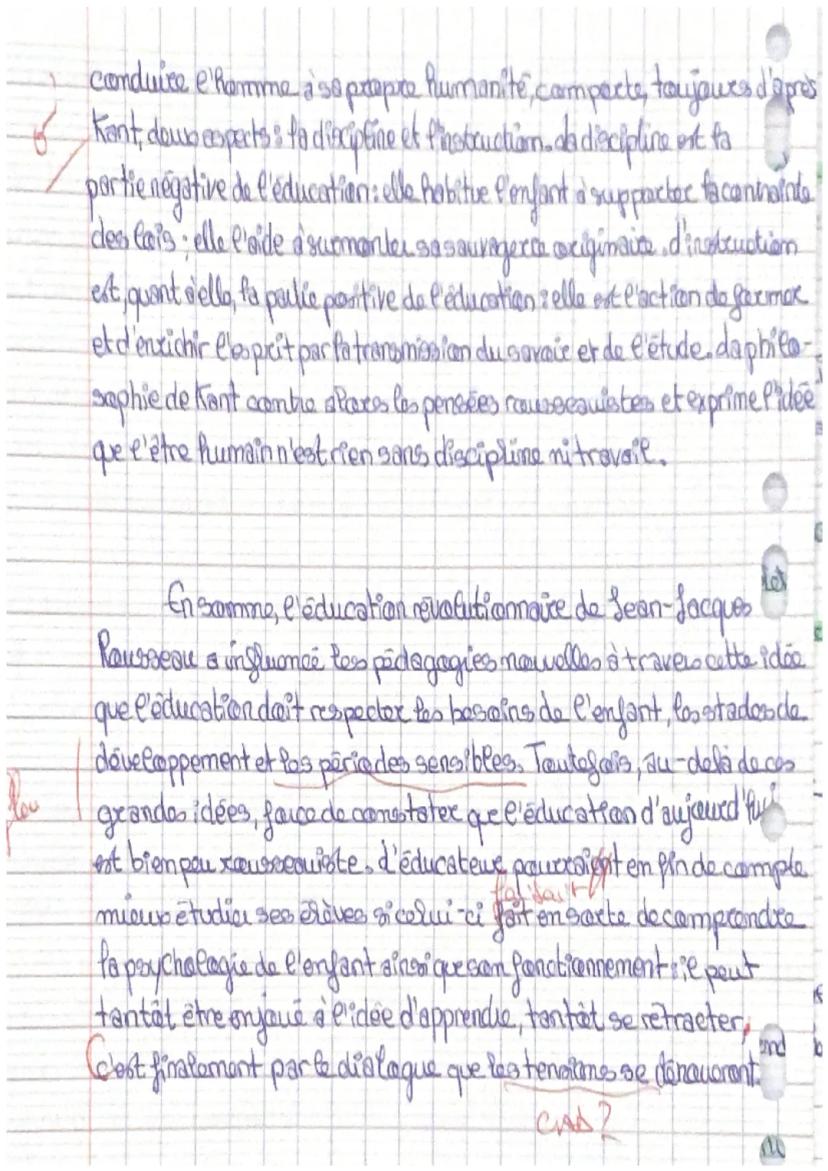 conduire l'homme à sa propre humanité, comporte, toujours d'après
Kant, deux aspects : la discipline et l'instruction. La discipline est la
partie négative de l'éducation : elle habitue l'enfant à supporter la contrainte
des lois ; elle l'aide à surmonter sa sauvagerie originaire. L'instruction
est, quant à elle, la partie positive de l'éducation : elle est l'action de former
et d'enrichir l'esprit par la transmission du savoir et de l'étude. La philo-
sophie de Kant contre alors les pensées rousseauistes et exprime l'idée
que l'être humain n'est rien sans discipline ni travail.
En somme, l'éducation révolutionnaire de Jean-Jacques
Rousseau a influencé les pédagogies nouvelles à travers cette idée
que l'éducation doit respecter les besoins de l'enfant, les stades de
développement et les périodes sensibles. Toutefois, au-delà de ces
flou
grandes idées, force de constater que l'éducation d'aujourd'hui
est bien peu rousseauiste. L'éducateur pourraient en fin de compte
faisait
mieux étudier ses élèves si celui-ci fait en sorte de comprendre
la psychologie de l'enfant ainsi que son fonctionnement : il peut
tantôt être enjoué à l'idée d'apprendre, tantôt se rétracter.
C'est finalement par le dialogue que les tensions se dénoueront.
CAD ?